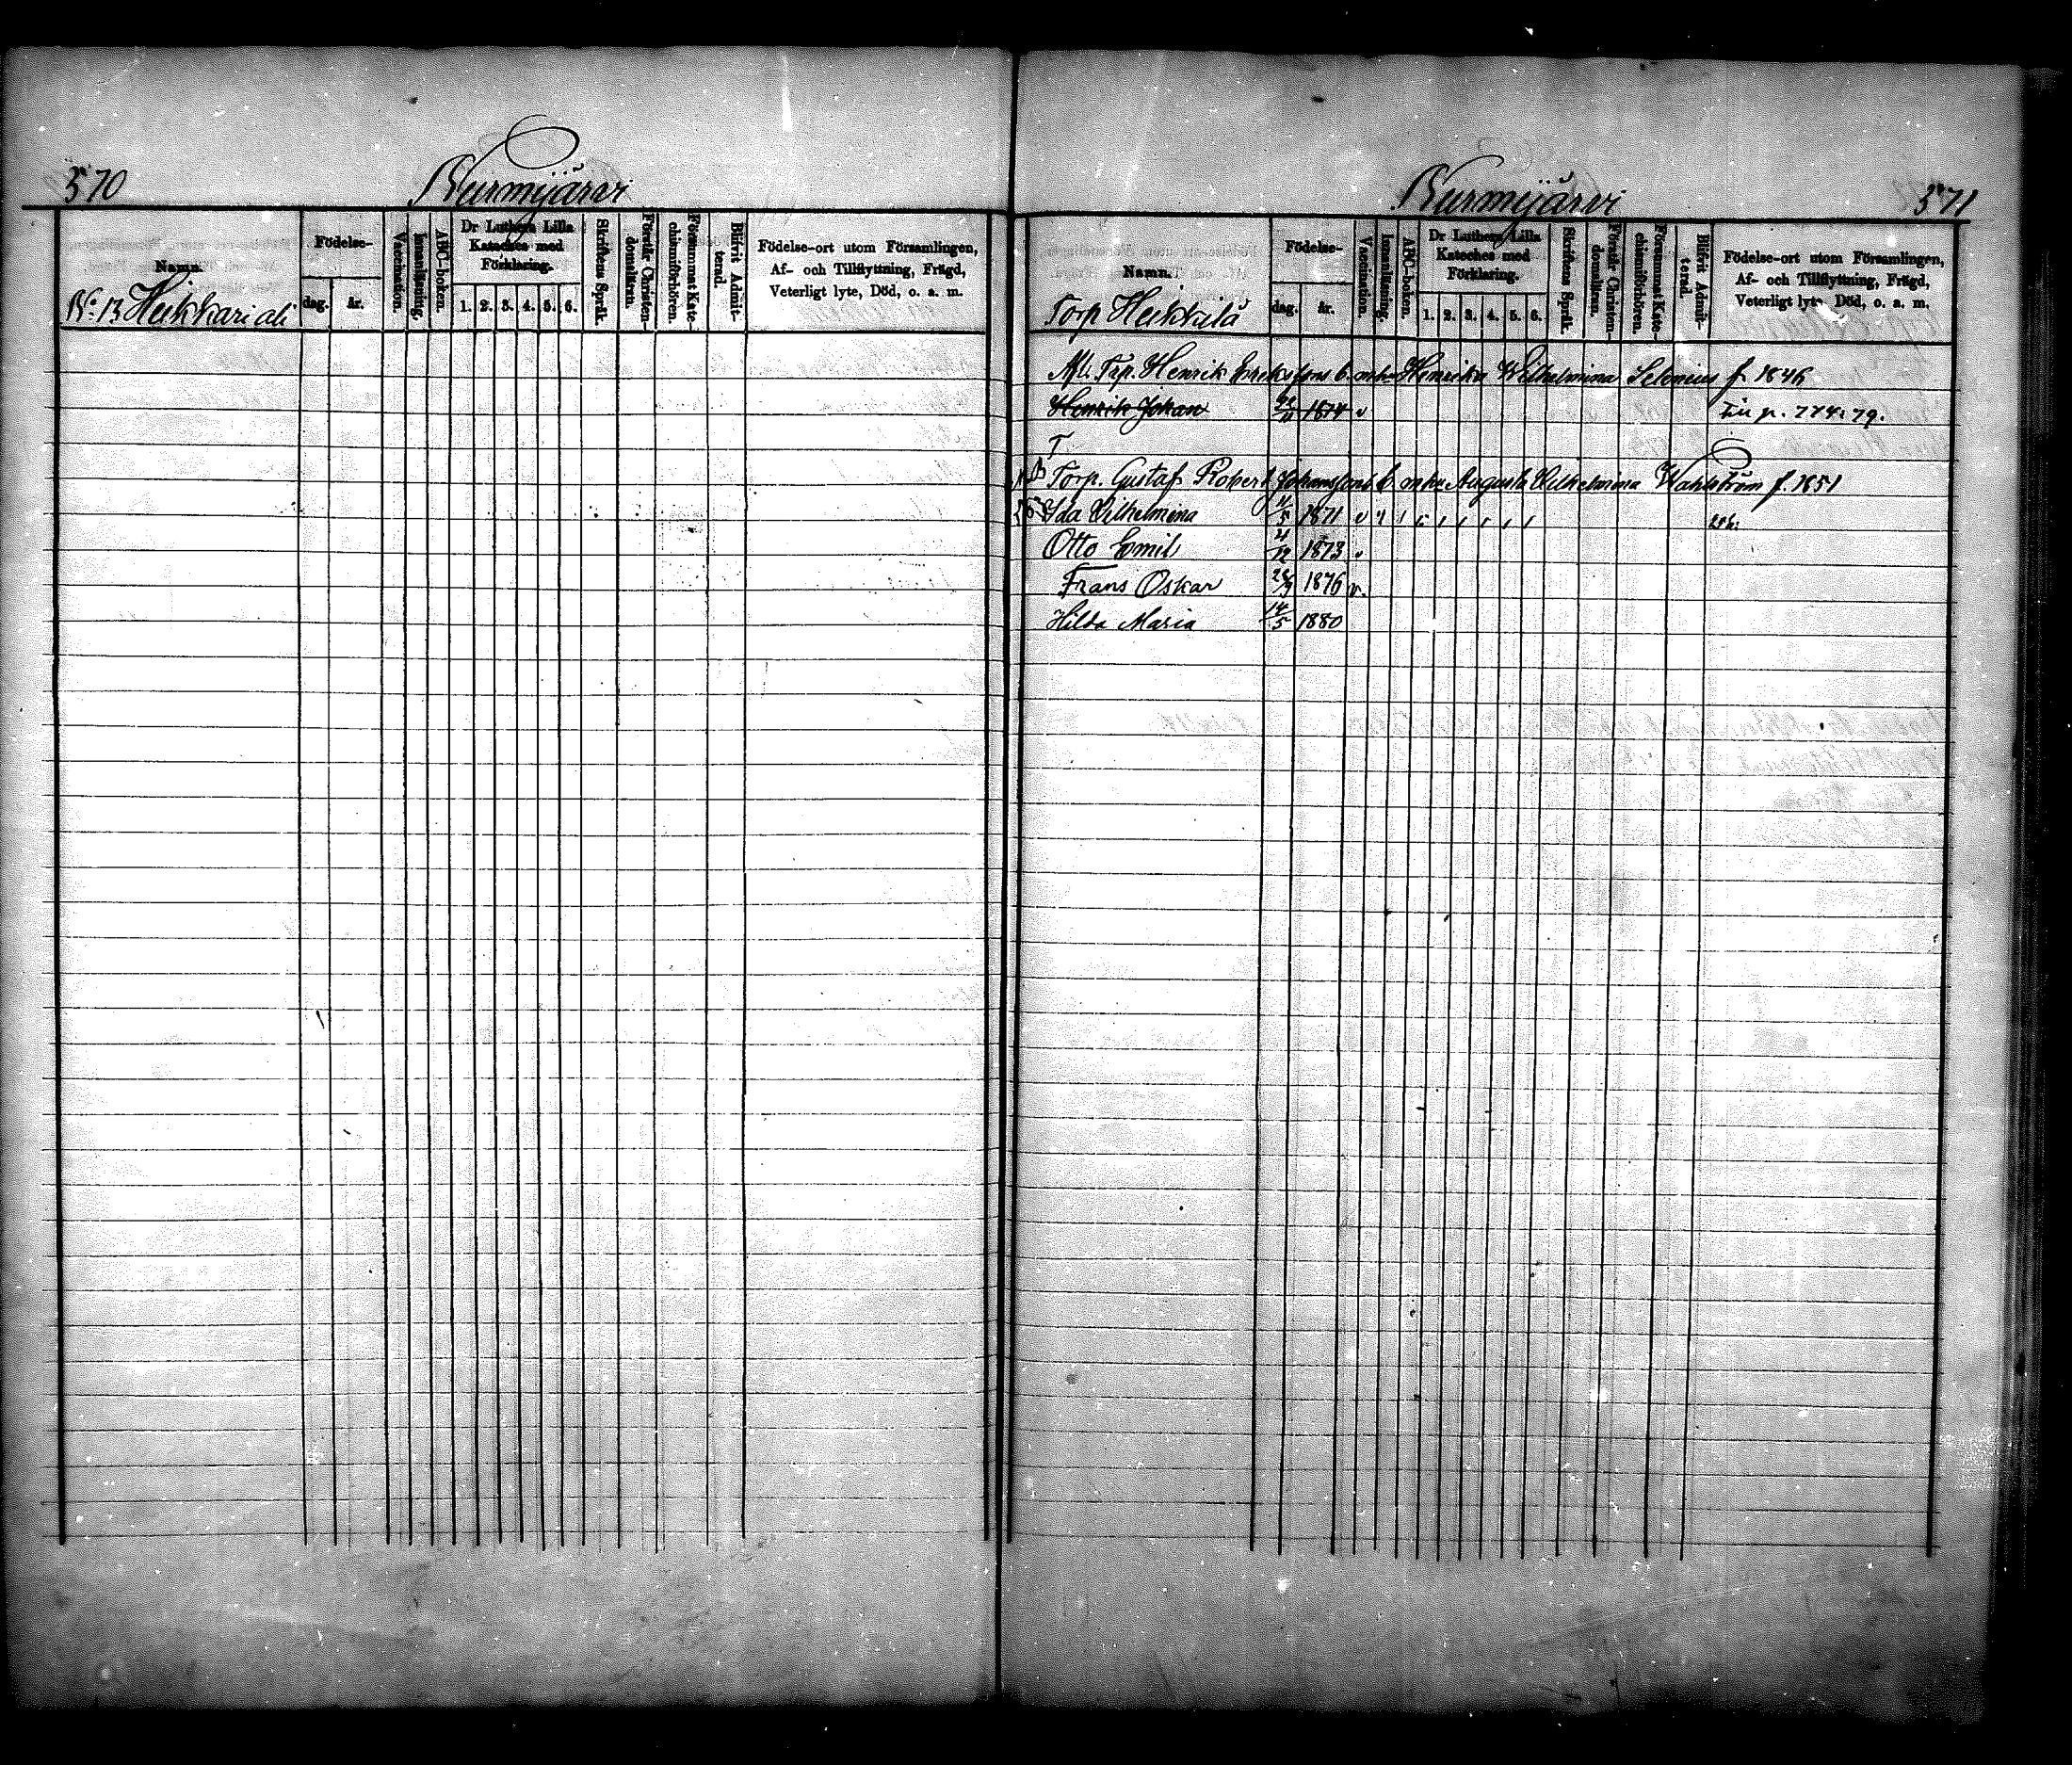 570
Nurmijärvi
Namn.
Nº 13 Heikkari ali
Födelse-
dag.
år.
Vaccination.
Innanläsning.
ABC-boken.
Dr Luthers Lilla
Kateches med
Förklaring.
1. 2. 3. 4. 5. 6.
Skriftens Språk.
Förstår Christen-
domslåran.
Försummat Kate-
chismiförhören.
Blifvit Admit-
terad.
Födelse-ort utom Församlingen,
Af- och Tillflyttning, Frägd,
Veterligt lyte, Död, o. a. m.
Nurmijärvi
571
Namn.
Torp Heikkilä
Födelse-
dag.
år.
Vaccination.
Innanläsning.
ABC-boken.
Dr Luthers Lilla
Kateches med
Förklaring.
1. 2. 3. 4. 5. 6.
Skriftens Språk.
Förstår Christen-
domslåran.
Försummat Kate-
chismiförhören.
Blifvit Admit-
terad.
Födelse-ort utom Församlingen,
Af- och Tillflyttning, Frägd,
Veterligt lyte, Död, o. a. m.
Afl. Torp. Henrik Erikssons b. m. h. Henrika Wilhelmina Selenius f. 1846
Henrik Johan 1874 v Till p. 774. 79.
T
Torp. Gustaf Robert Johanssons b. m. hu Augusta Wilhelmina Wahlström f. 1851
Ida Wilhelmina 11/5 1871 v
Otto Emil 4/12 1873 v
Frans Oskar 1876 v.
Hilda Maria 14/5 1880